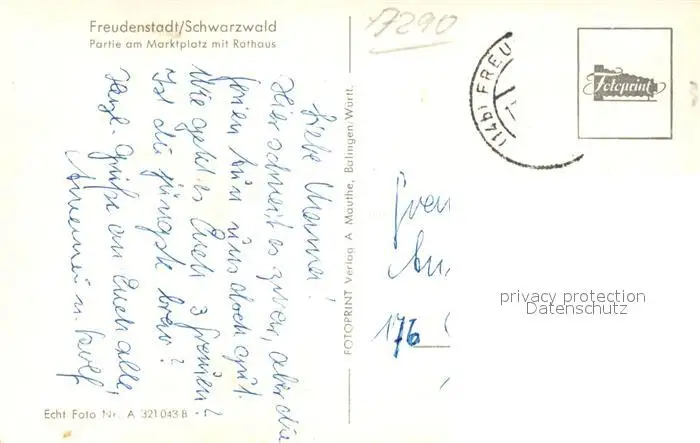 Freudenstadt/Schwarzwald
Partie am Marktplatz mit Rathaus
Liebe Mama!
Hier schneit es zwar, aber die
Ferien tun uns doch gut.
Wie geht es Euch 3 Frauen?
Ist die jüngste brav?
Herzl. Grüße an Euch alle,
Annemei u. Rolf
Echt Foto Nr. A 321043 B - 1
FOTOPRINT Verlag A. Mauthe, Balingen Württ.
17290
(14b) FREU
Fotoprint
176
privacy protection
Datenschutz